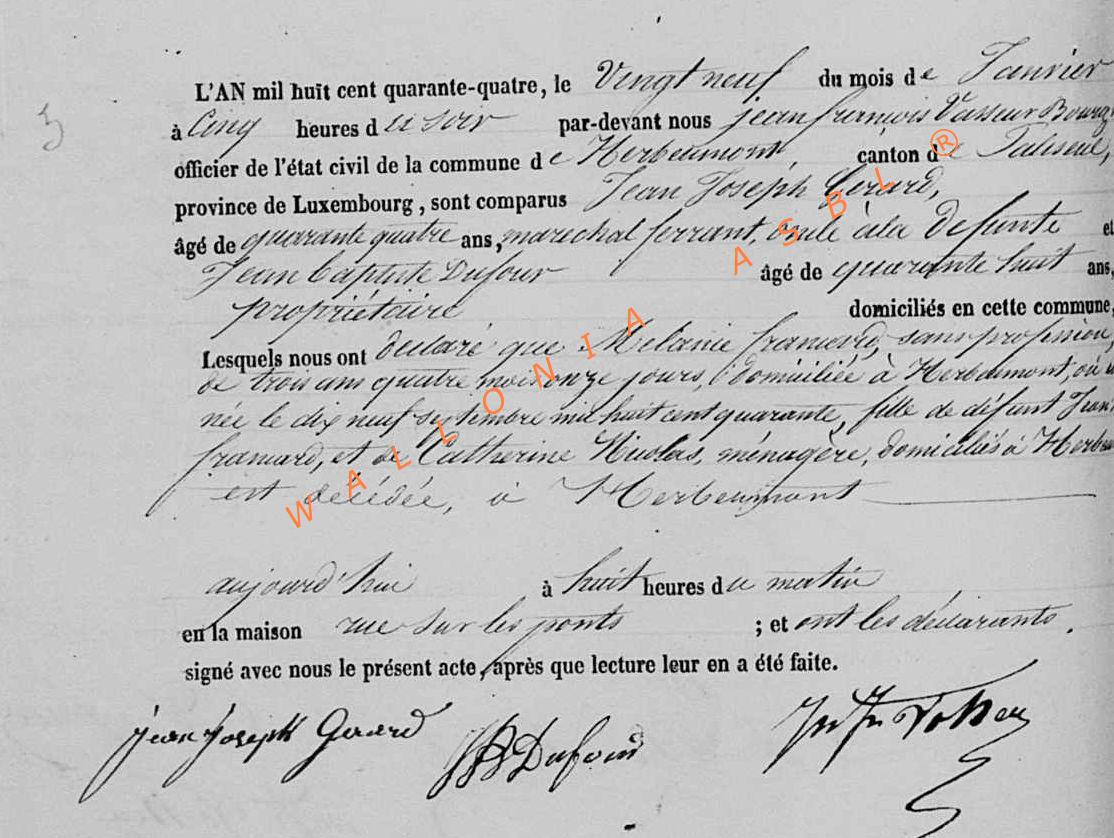 3
L'AN mil huit cent quarante-quatre, le Vingt neuf du mois de Janvier
à Cinq heures du soir par-devant nous jean françois Vasseur Bourg
officier de l'état civil de la commune de Herbeumont, canton de Paliseul,
province de Luxembourg, sont comparus Jean Joseph Gerard,
âgé de quarante quatre ans, marechal ferrant, à la défunte et
Jean Baptiste Dufour âgé de quarante huit ans,
propriétaire domiciliés en cette commune,
Lesquels nous ont declaré que Melanie framard, sans profession,
de trois ans quatre mois onze jours, domiciliée à Herbeumont, où
née le dix neuf septembre mil huit cent quarante, fille de défunt Jean
framard, et de Catherine Nicolas, ménagère, domiciliés à Herbeu
est décédée, à Herbeumont
aujourd'hui à huit heures du matin
en la maison rue sur les ponts ; et ont les déclarants.
signé avec nous le présent acte, après que lecture leur en a été faite.
jean joseph Gerard JB Dufour
WALLONIA ASBL ®